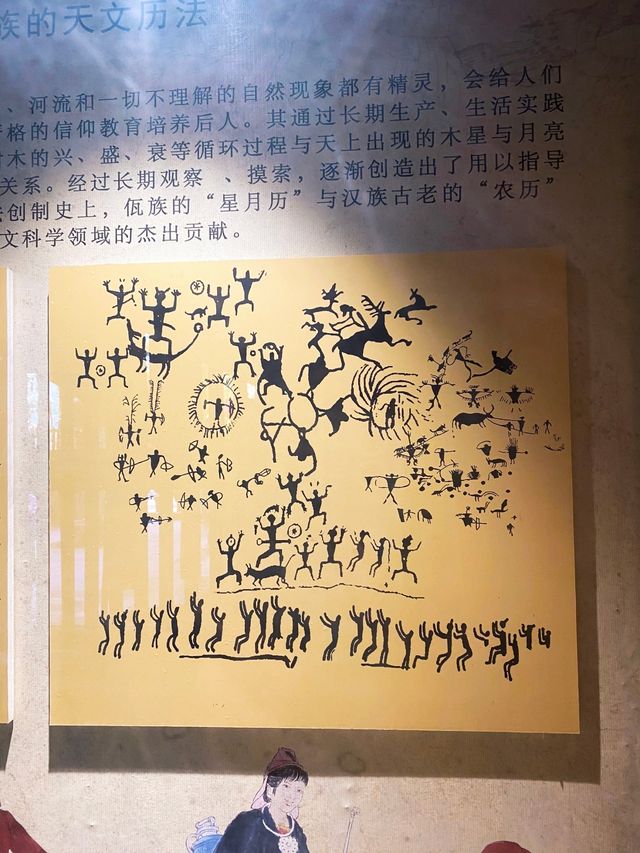 族的天文历法
、河流和一切不理解的自然现象都有精灵，会给人们
格的信仰教育培养后人。其通过长期生产、生活实践
木的兴、盛、衰等循环过程与天上出现的木星与月亮
关系。经过长期观察 、摸索，逐渐创造出了用以指导
创制史上，佤族的“星月历”与汉族古老的“农历”
文科学领域的杰出贡献。